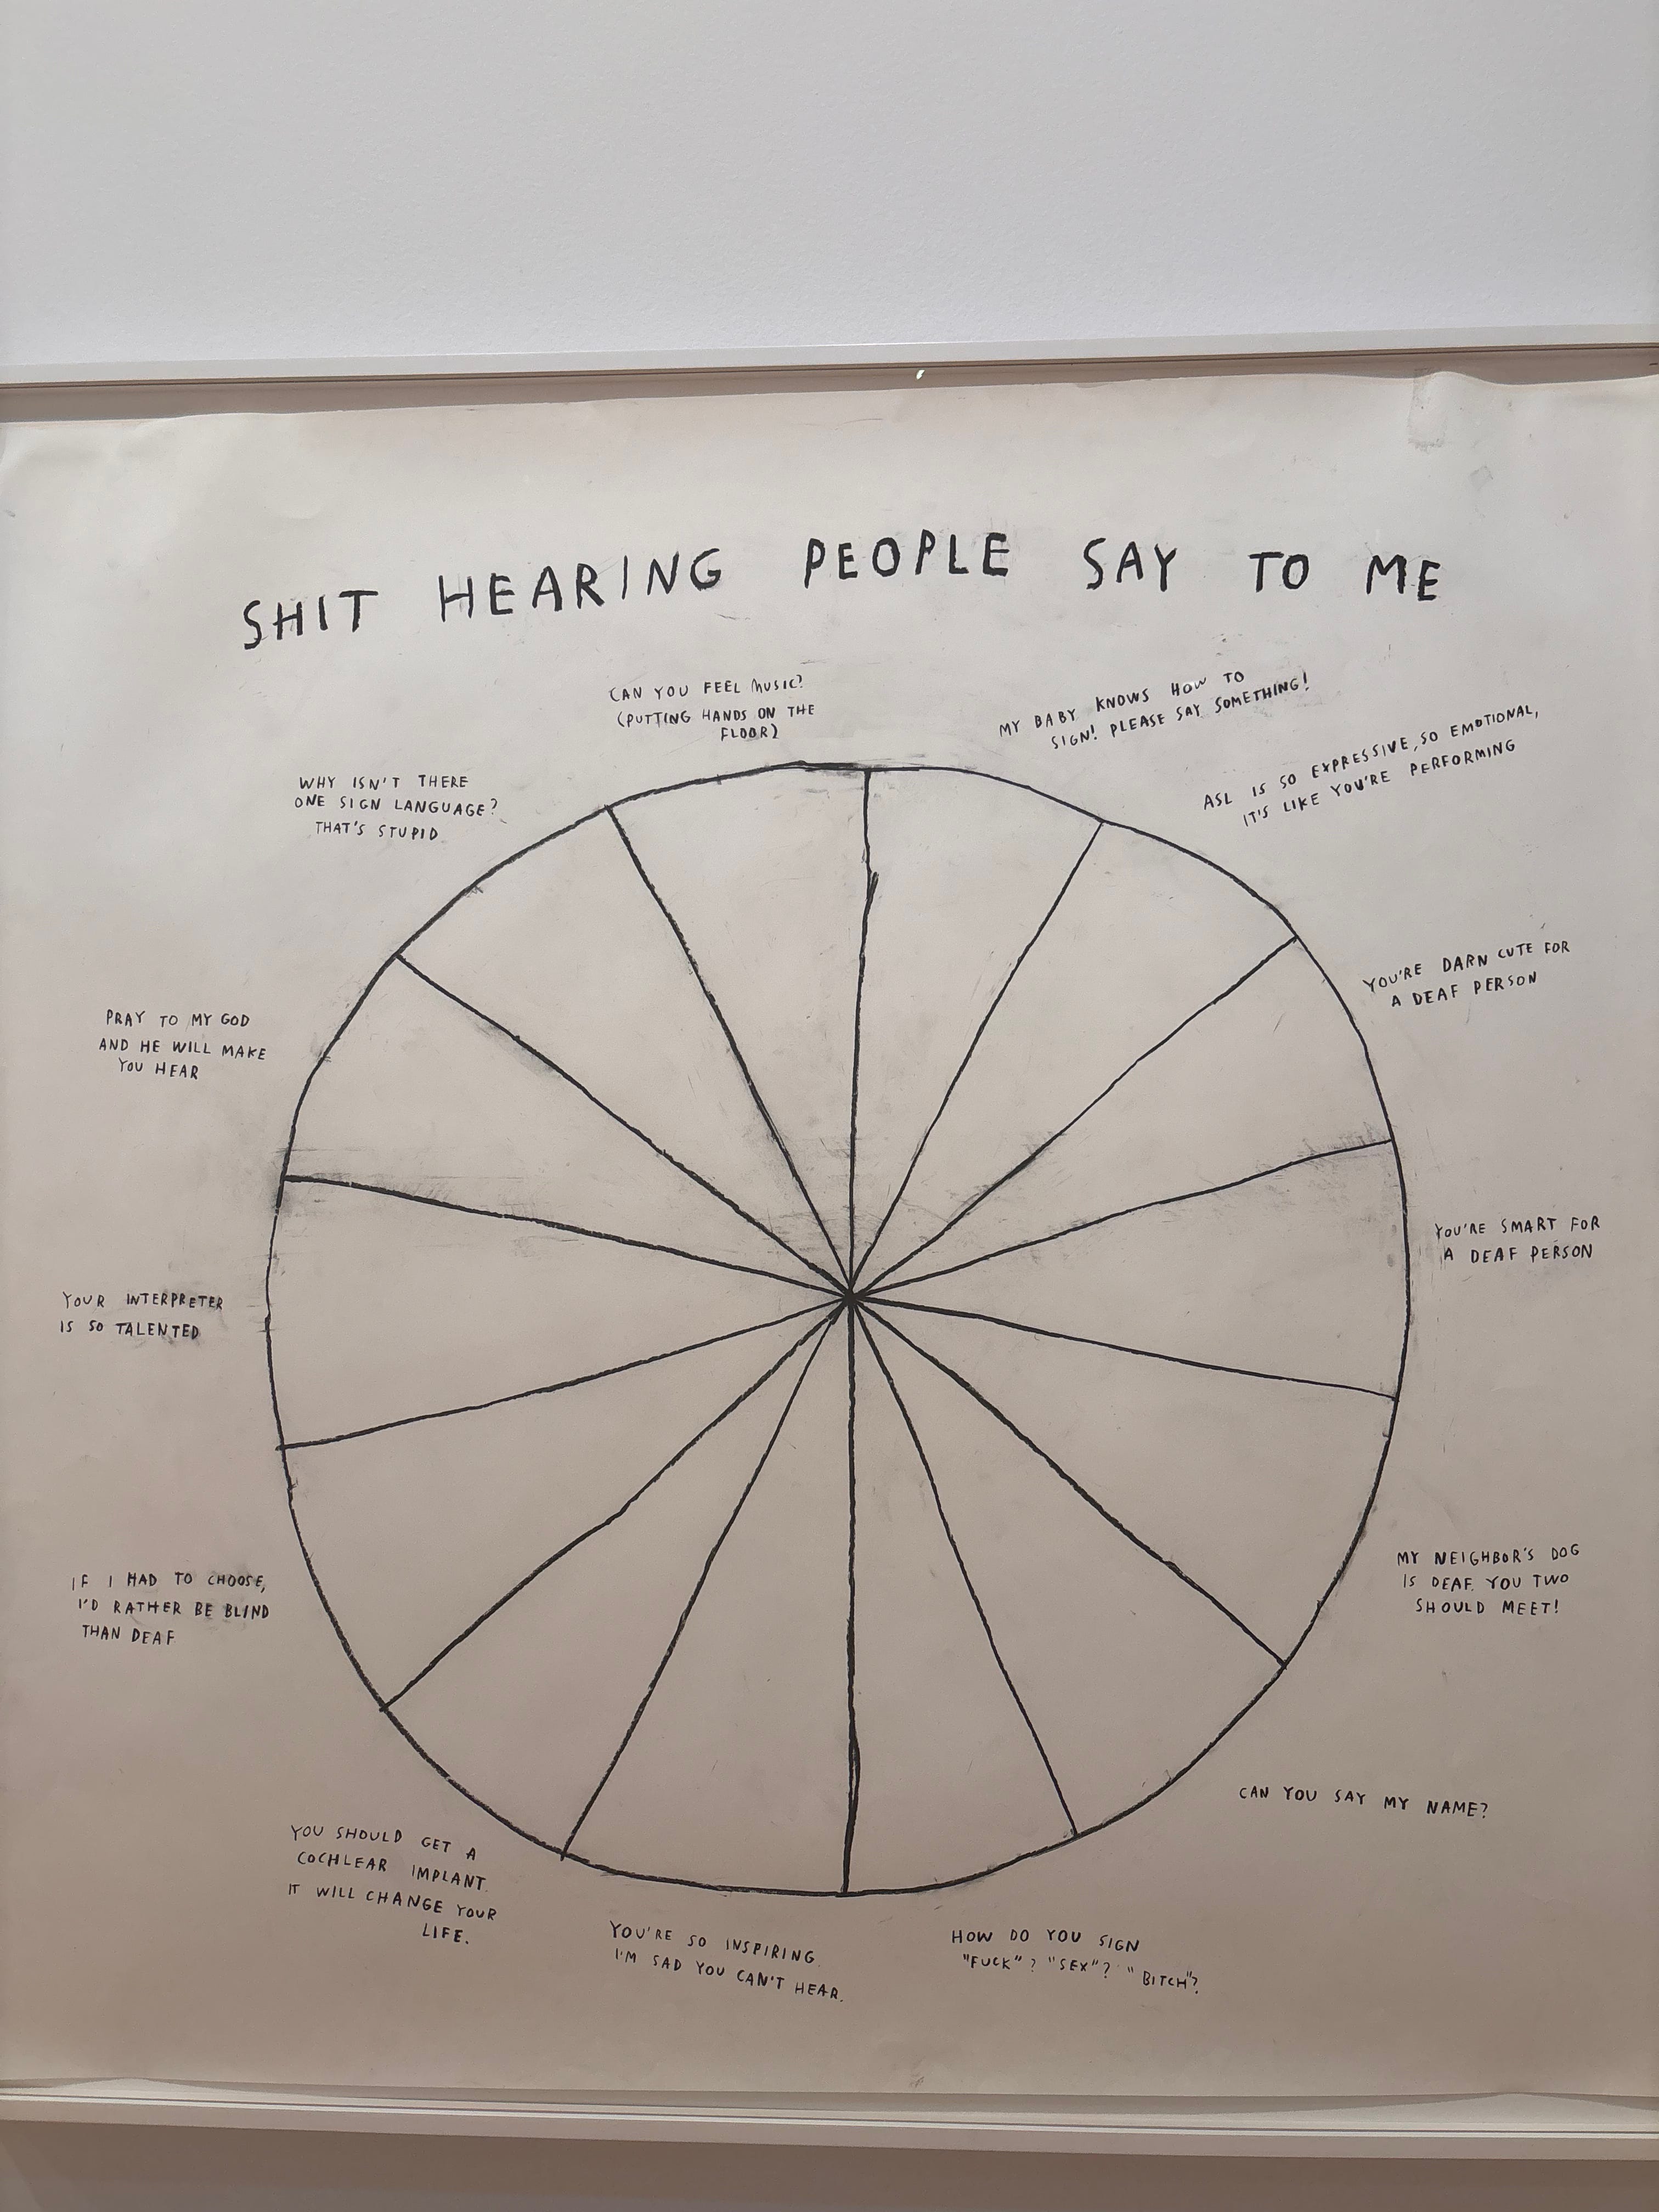 SHIT HEARING PEOPLE SAY TO ME
CAN YOU FEEL MUSIC?
(PUTTING HANDS ON THE
FLOOR)
MY BABY KNOWS HOW TO
SIGN! PLEASE SAY SOMETHING!
ASL IS SO EXPRESSIVE, SO EMOTIONAL,
IT'S LIKE YOU'RE PERFORMING
YOU'RE DARN CUTE FOR
A DEAF PERSON
YOU'RE SMART FOR
A DEAF PERSON
MY NEIGHBOR'S DOG
IS DEAF. YOU TWO
SHOULD MEET!
CAN YOU SAY MY NAME?
HOW DO YOU SIGN
"FUCK"? "SEX"? "BITCH"?
YOU'RE SO INSPIRING.
I'M SAD YOU CAN'T HEAR.
YOU SHOULD GET A
COCHLEAR IMPLANT.
IT WILL CHANGE YOUR
LIFE.
IF I HAD TO CHOOSE,
I'D RATHER BE BLIND
THAN DEAF
YOUR INTERPRETER
IS SO TALENTED
PRAY TO MY GOD
AND HE WILL MAKE
YOU HEAR
WHY ISN'T THERE
ONE SIGN LANGUAGE?
THAT'S STUPID